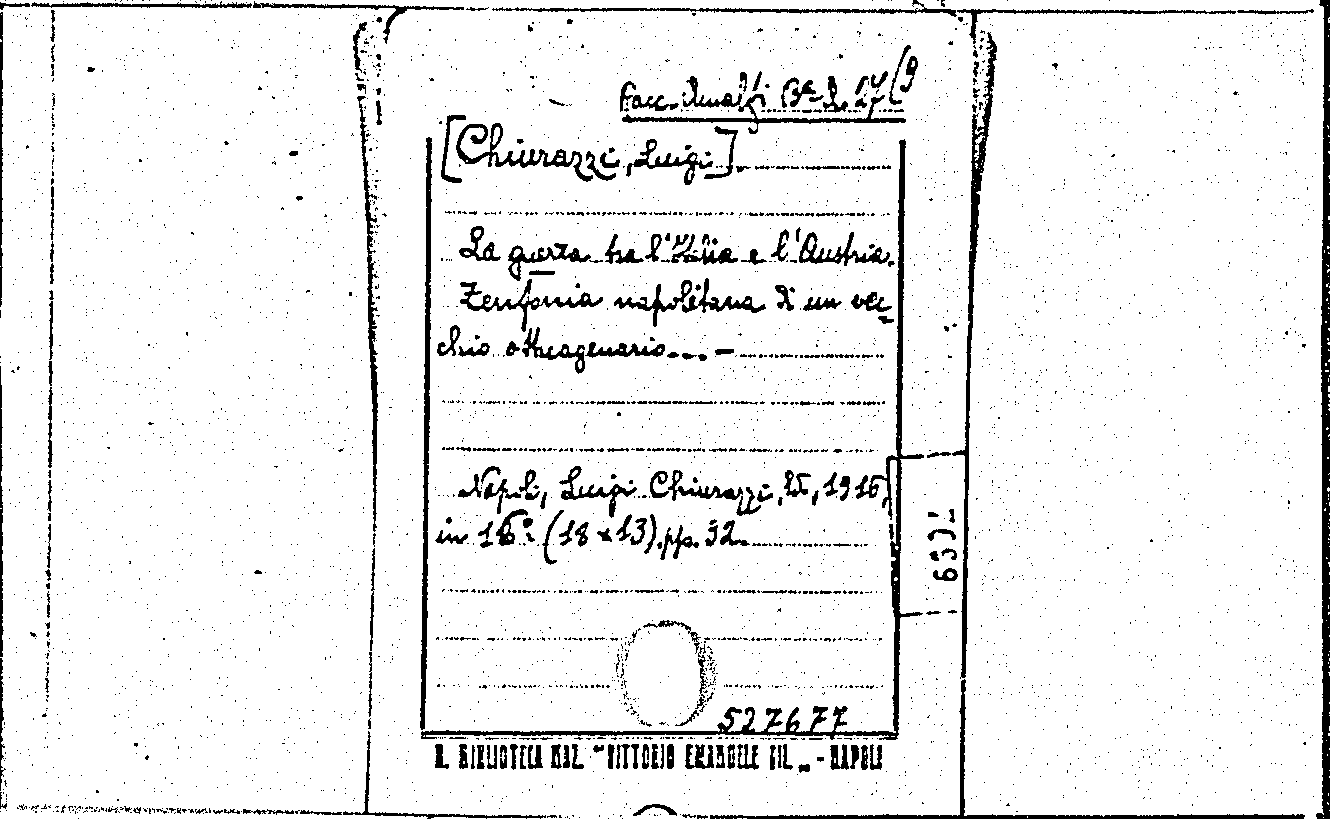 Racc. Amalfi Bª A. 27(9
[Chiurazzi, Luigi].
La guerra tra l'Italia e l'Austria.
Zenfonia napolitana di un vec-
chio ottuagenario... -
Napoli, Luigi Chiurazzi, Ed., 1916,
in 16° (18 x 13). pp. 32.
6392
527677
R. BIBLIOTECA NAZ. "VITTORIO EMANUELE III„ - NAPOLI